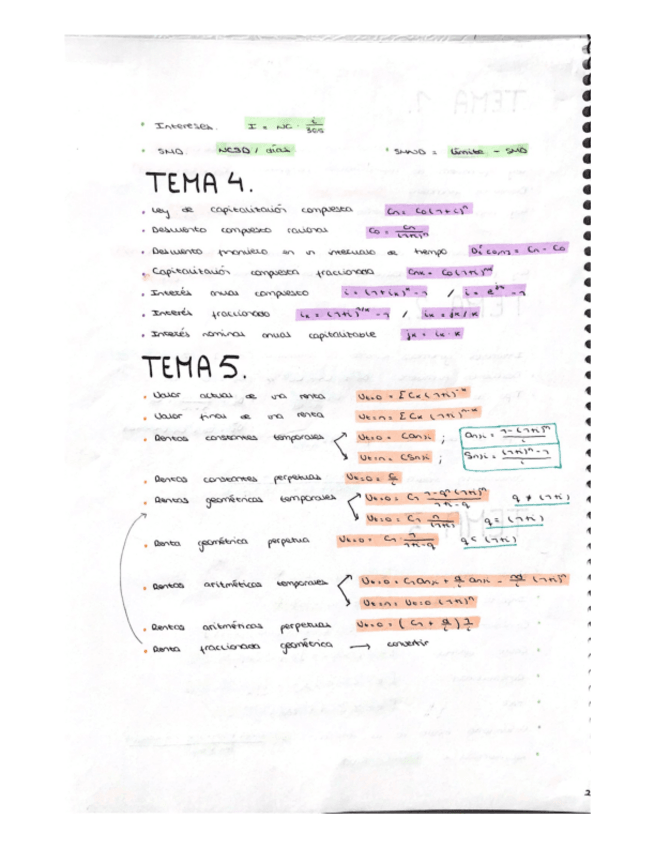 Intereses. I = NC · i/365
SMD. NCSD / días · SMND = Límite - SMD
TEMA 4.
· Ley de capitalización compuesta Cn = C0 (1+i)^n
· Descuento compuesto racional C0 = Cn/(1+i)^n
· Descuento financiero en un intervalo de tiempo = Cn - C0
· Capitalización compuesta fraccionada
· Interés anual compuesto i = (1+ik)^k - 1 /
· Interés fraccionado ik = (1+i)^1/k - 1 / ik = jk/k
· Interés nominal anual capitalizable jk = ik · k
TEMA 5.
· Valor actual de una renta Vt=0 = Σ Cx (1+i)^-x
· Valor final de una renta Vt=n = Σ Cx (1+i)^n-x
· Rentas constantes temporales Vt=0 = C an¬i ; an¬i =
Vt=n = C Sn¬i ; Sn¬i = (1+i)^n - 1 / i
· Rentas constantes perpetuas Vt=0 = C/i
· Rentas geométricas temporales Vt=0 = C1 q ≠ (1+i)
Vt=0 = C1 n/(1+i) q = (1+i)
· Renta geométrica perpetua Vt=0 = C1 · 1/1+i-q q < (1+i)
· Rentas aritméticas temporales Vt=0 = C1 an¬i + d/i an¬i - nd/i
Vt=n = Vt=0 (1+i)^n
· Rentas aritméticas perpetuas Vt=0 = (C1 + d/i) 1/i
· Renta fraccionada geométrica → convertir
2